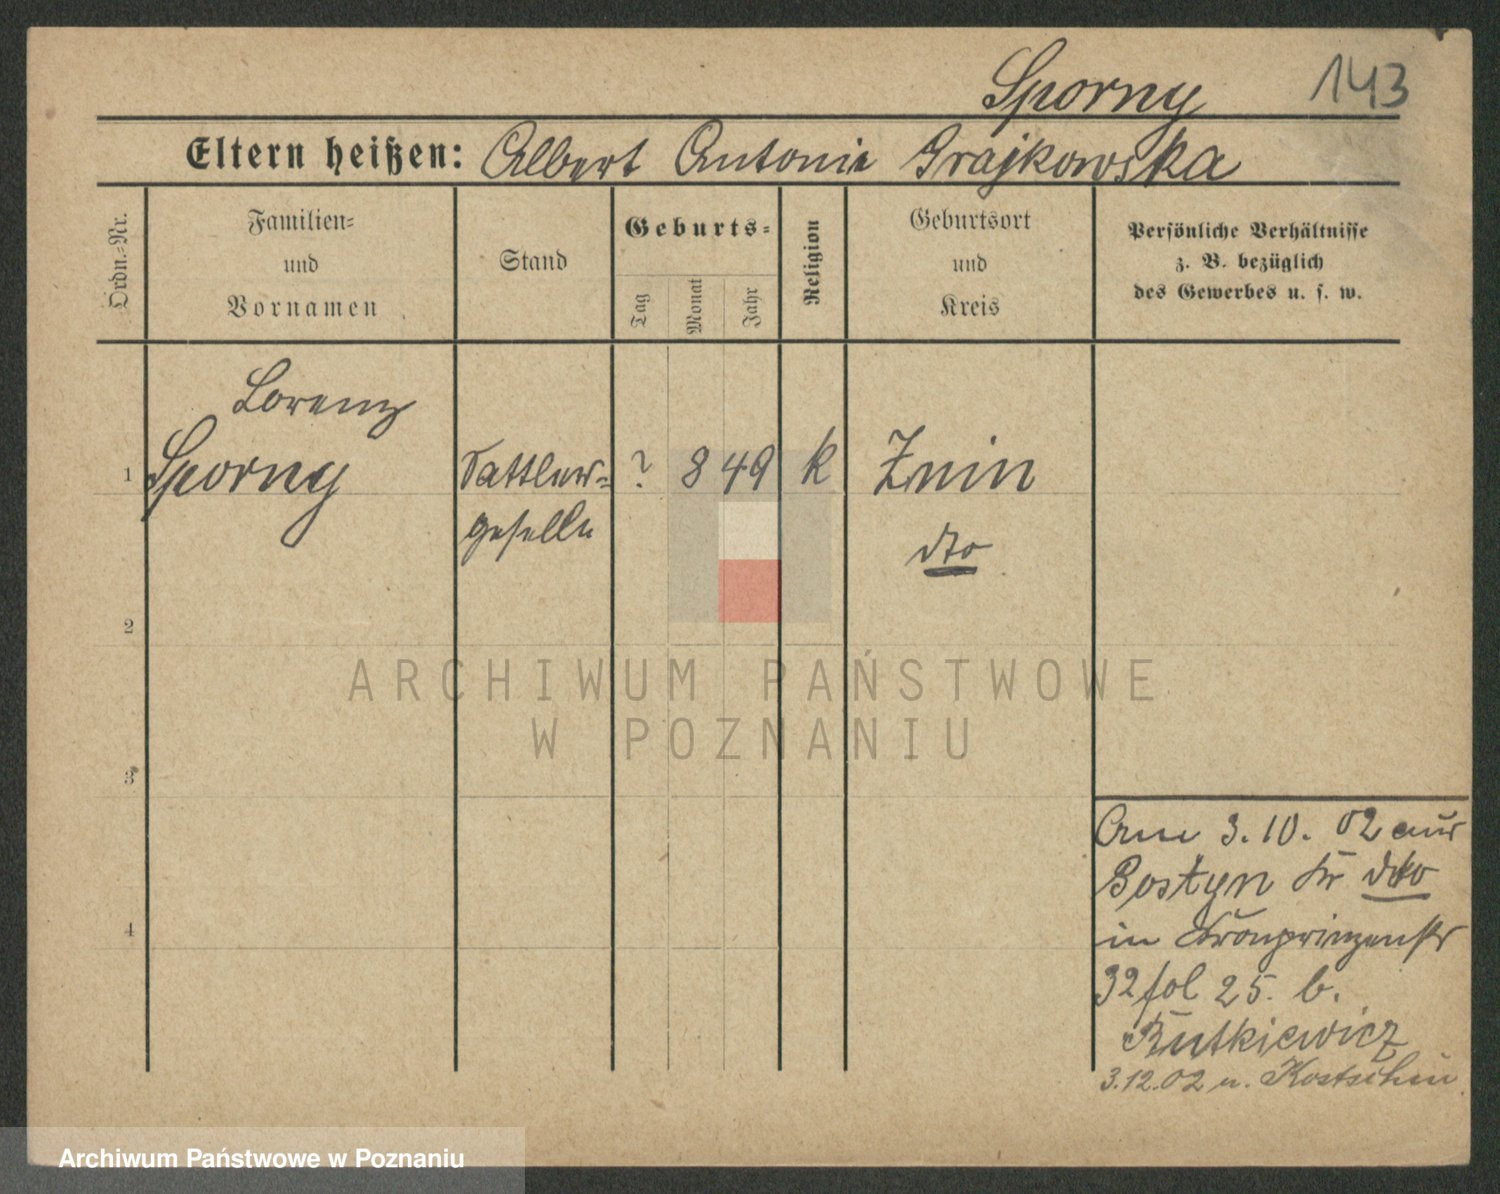 Sporny 143
Eltern heißen: Albert Antonie Grajkowska
Ordn.-Nr.
Familien-
und
Vornamen
Stand
Geburts-
Tag
Monat
Jahr
Religion
Geburtsort
und
Kreis
Persönliche Verhältnisse
z. B. bezüglich
des Gewerbes u. s. w.
Lorenz
1 Sporny Sattler- ? 8 49 k Znin
geselle dto
2
3
4
Am 3.10.02 aus
Gostyn Kr dto
in Kronprinzenstr
32 fol 25. b.
Rutkiewicz
3.12.02 n. Kostschin
ARCHIWUM PAŃSTWOWE
W POZNANIU
Archiwum Państwowe w Poznaniu